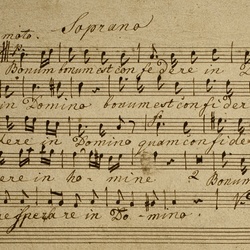 moto. Soprano
Bonum bonum est confidere in
in Domino bonum est confider
dere in Domino quam confide
ere in homine 2 Bonum
ne sperare in Domino.